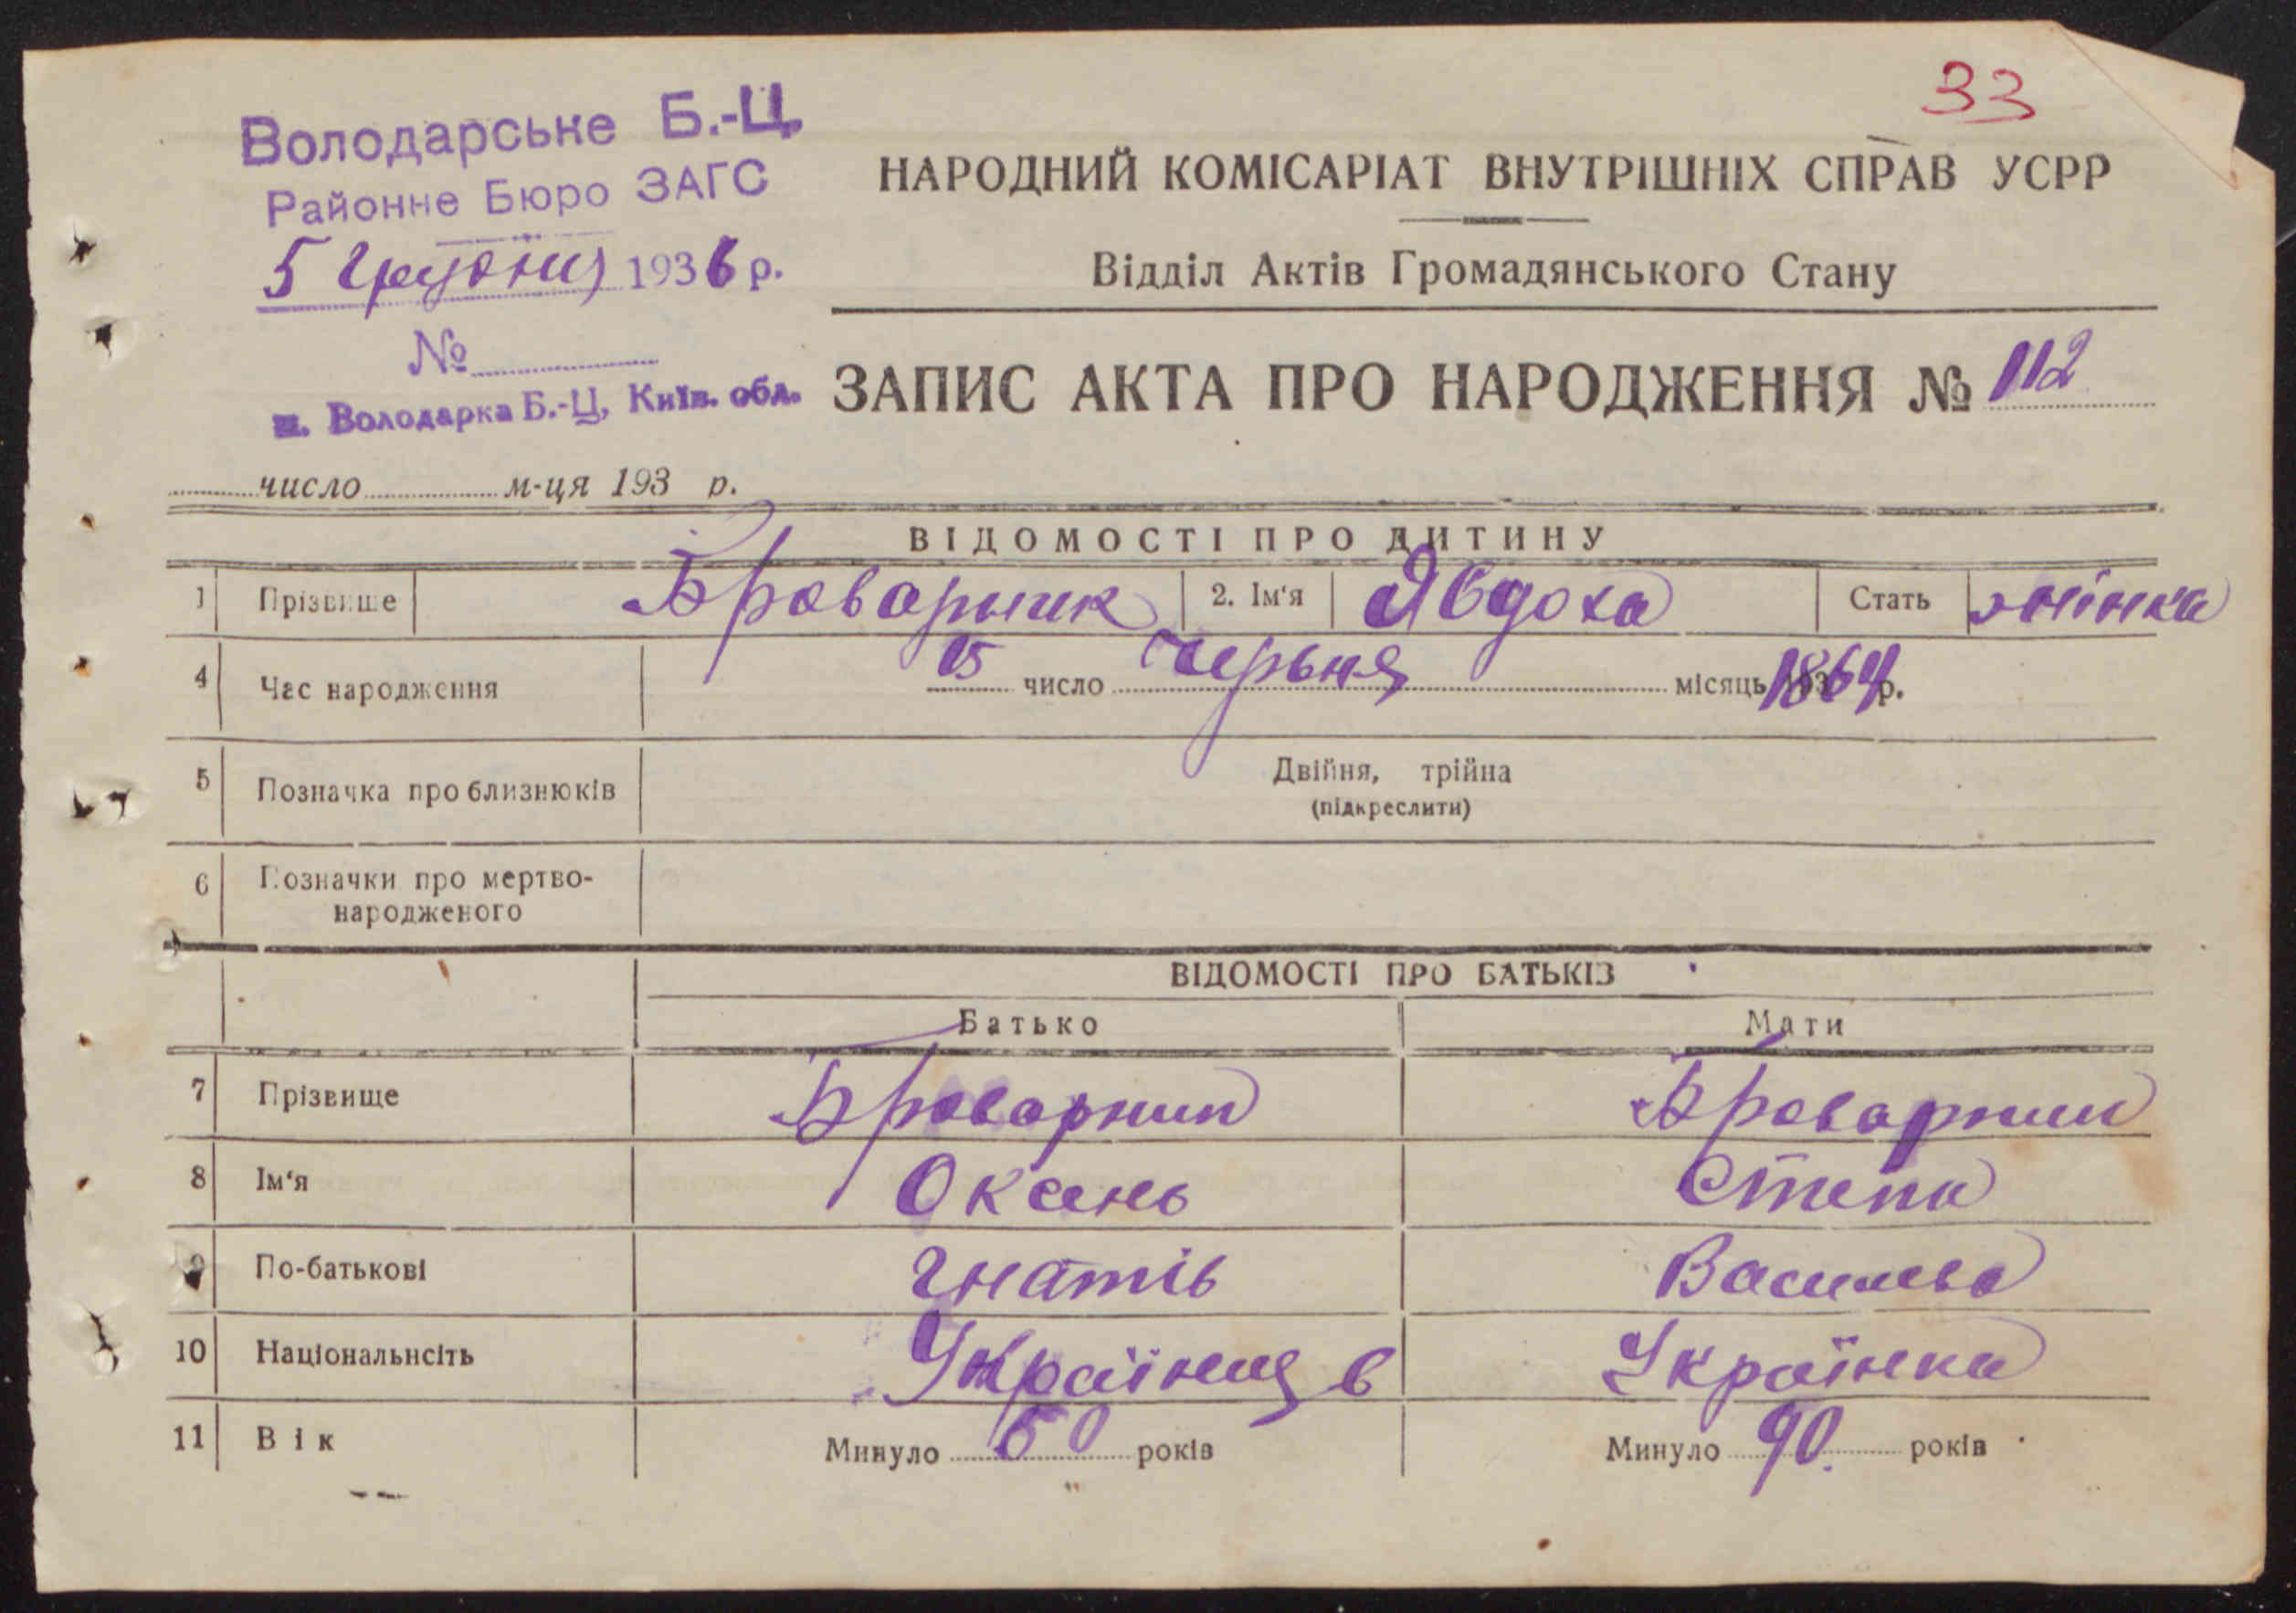 33
Володарське Б.-Ц.
Районне Бюро ЗАГС
5 Грудня 1936 р.
№
м. Володарка Б.-Ц, Київ. обл.
НАРОДНИЙ КОМІСАРІАТ ВНУТРІШНІХ СПРАВ УСРР
Відділ Актів Громадянського Стану
ЗАПИС АКТА ПРО НАРОДЖЕННЯ № 112
число м-ця 193 р.
ВІДОМОСТІ ПРО ДИТИНУ
1 Прізвище Броварник 2. Ім'я Явдоха Стать жінка
4 Час народження 15 число червня місяць 1864 р.
5 Позначка про близнюків Двійня, трійна
(підкреслити)
6 Позначки про мертво-
народженого
ВІДОМОСТІ ПРО БАТЬКІВ
Батько Мати
7 Прізвище Броварник Броварник
8 Ім'я
9 По-батькові Гнатів Василева
10 Національнсіть Українець Українка
11 Вік Минуло 60 років Минуло 90 років